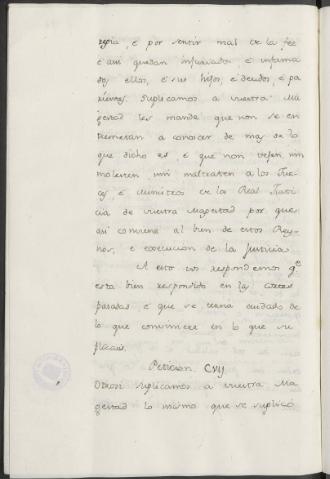 regia, e por sentir mal de la fee
e asi quedan injuriados, e infama
dos ellos, e sus hijos, e deudos, e pa
rientes. Suplicamos a vuestra Ma
gestad les mande, que non se en
tremetan a conocer de mas de lo
que dicho es, e que non vejen nin
molesten, nin maltraten a los Jue
ces, e Ministros de la Real Justi
cia de vuestra Magestad por que
asi conviene al bien de estos Rey
nos, e execucion de la Justicia
A esto vos respondemos qe
esta bien respondido en las cortes
pasadas e que se terna cuidado de
lo que conviniere en lo que su
plicais.
Peticion CVIJ
Otrosi suplicamos a vuestra Ma
gestad lo mismo que se suplicó